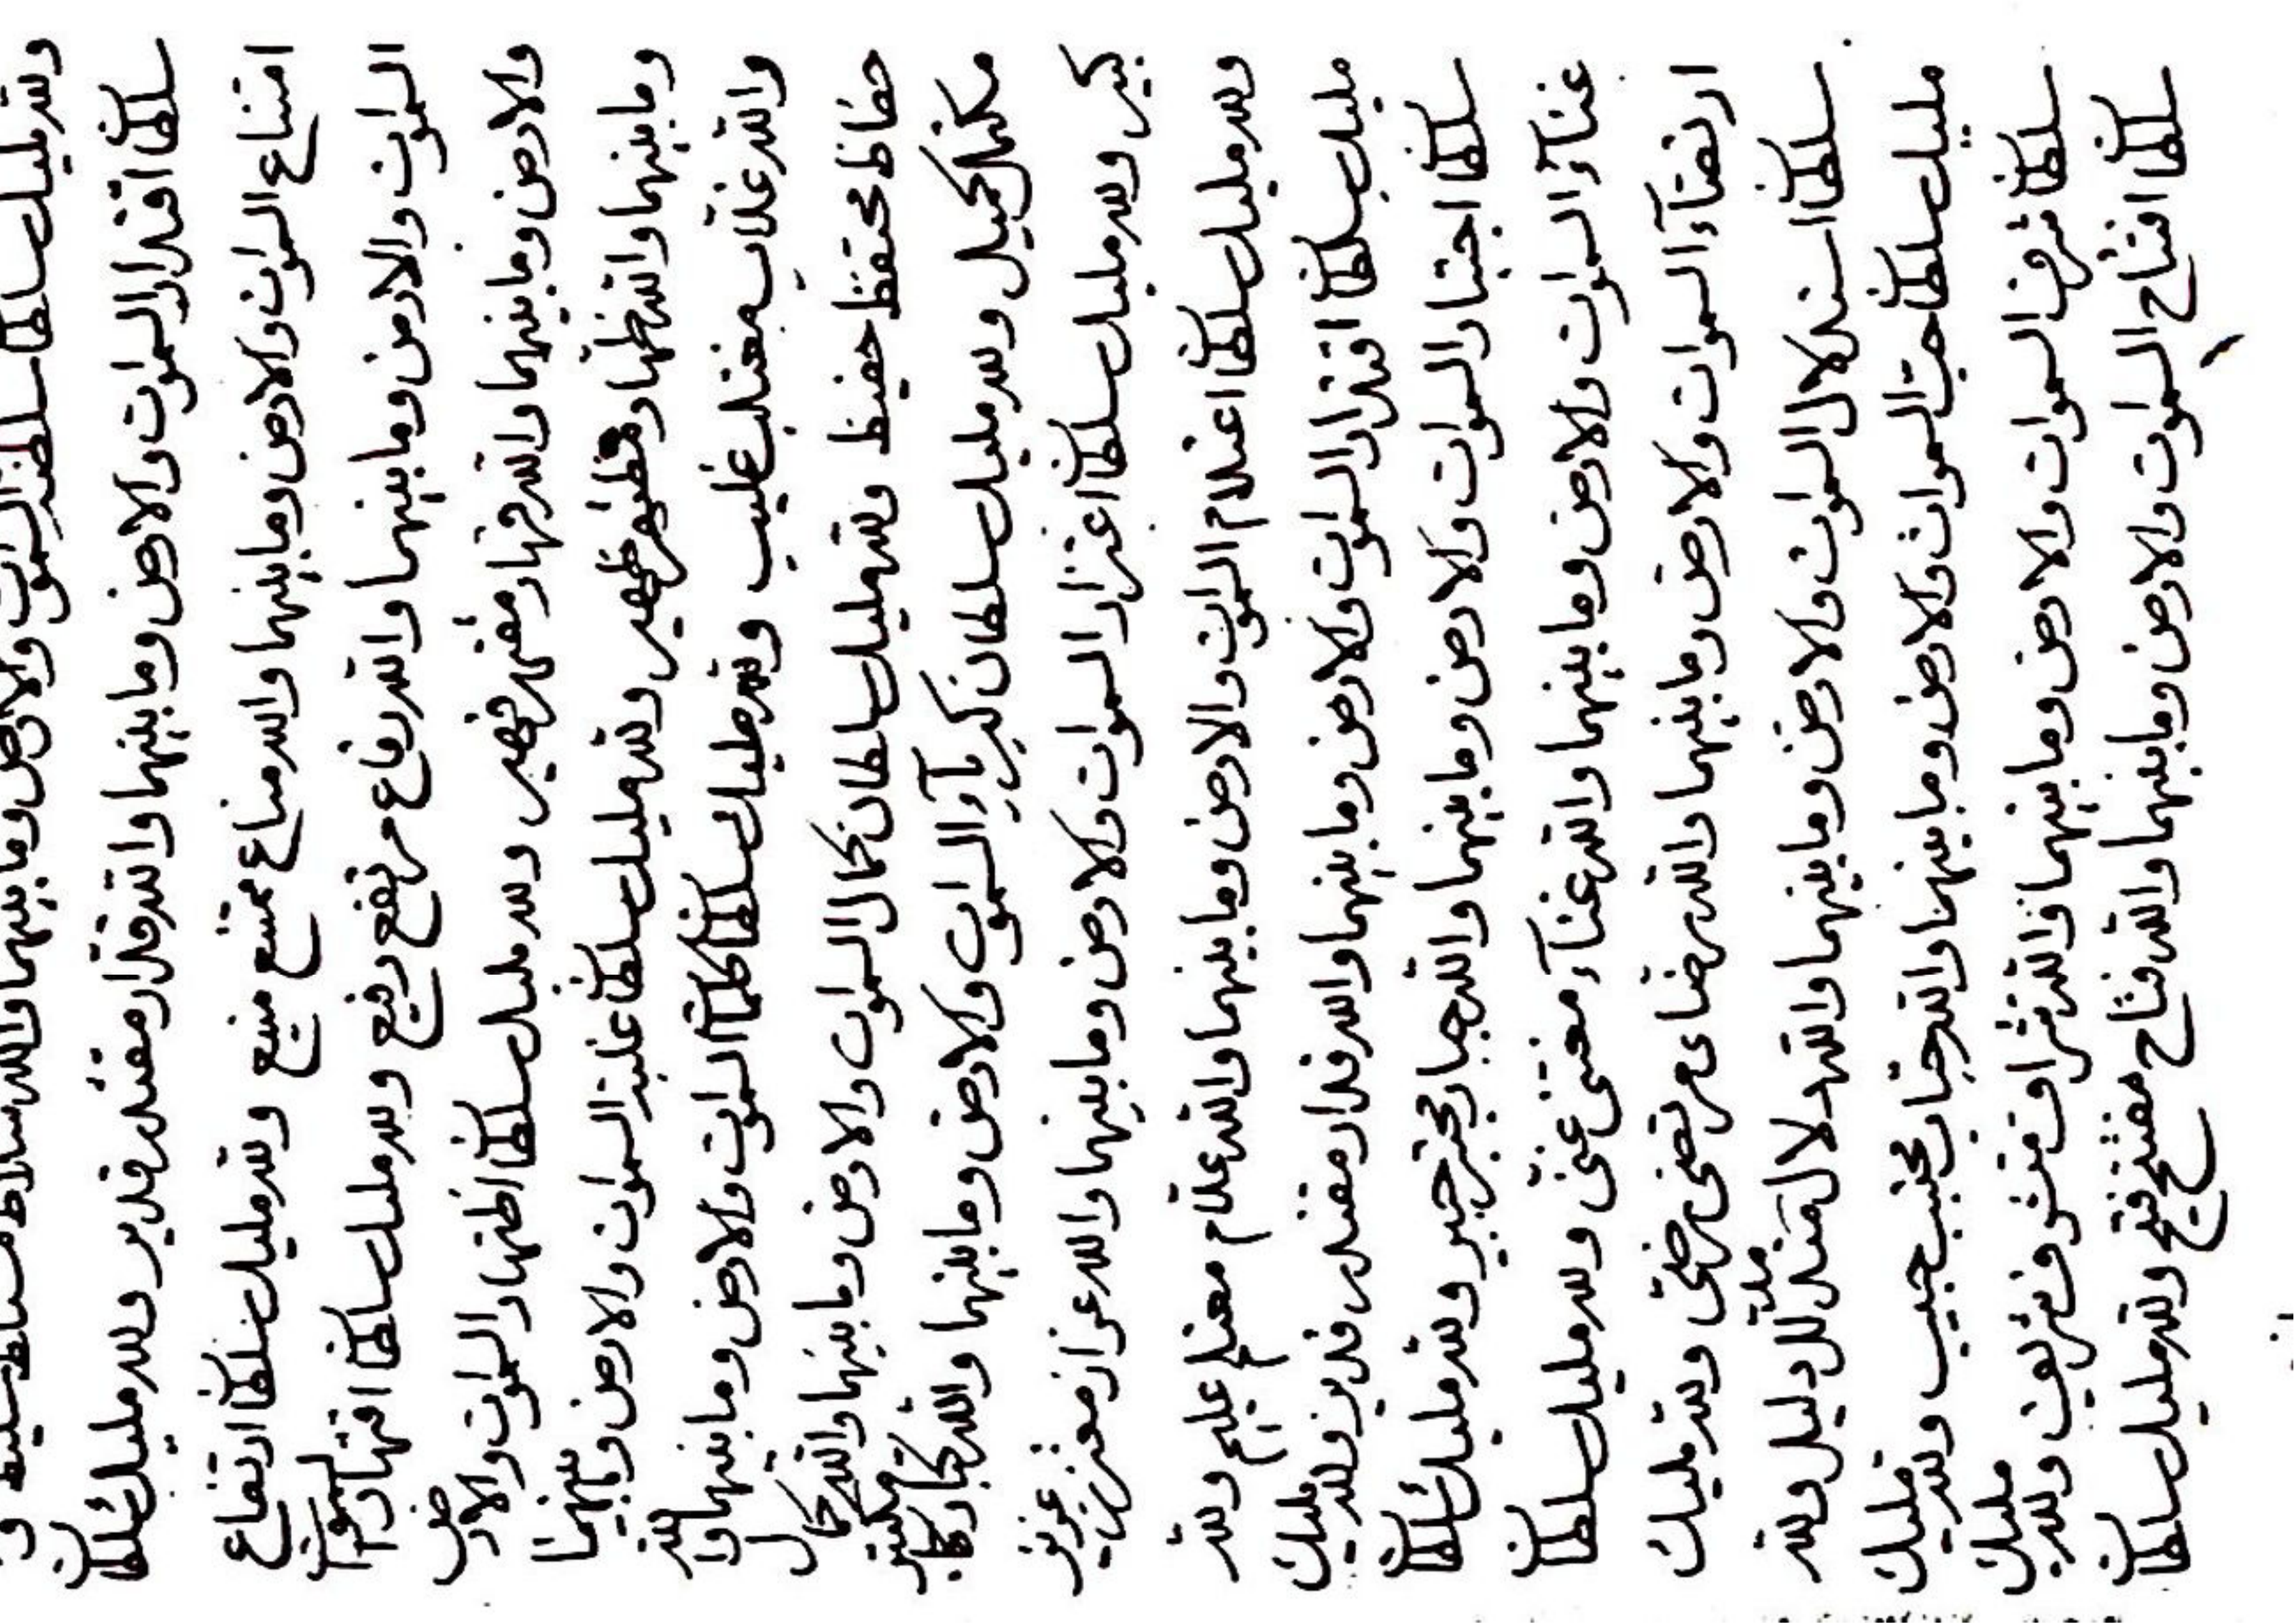 ولله مليك سلطان سلطنة السموات والارض وما بينهما والله سلاط مستلط سليط و
سلطان اقتدار السموات والارض وما بينهما والله قدار مقتدر قدير ولله مليك سلطان
امتناع السموات والارض وما بينهما والله مناع ممتنع منيع ولله مليك سلطان ارتفاع
السموات والارض وما بينهما والله رفاع مرتفع رفيع ولله مليك سلطان اقتهار السموات
والارض وما بينهما والله قهار مقتهر قهير ولله مليك سلطان اظتهار السموات والارض
وما بينهما والله ظهار مظتهر ظهير ولله مليك سلطان غلبة السموات والارض وما بينهما
والله غلاب مغتلب غليب ولله مليك سلطان السموات والارض وما بينهما والله
حفاظ محتفظ حفيظ ولله مليك سلطان كمال السموات والارض وما بينهما والله كمال
مكتمل كميل ولله مليك سلطان كبرياء السموات والارض وما بينهما والله كبار مكتبر
كبير ولله مليك سلطان اعتزاز السموات والارض وما بينهما والله عزاز معتزز عزيز
ولله مليك سلطان اعتلام السموات والارض وما بينهما والله علام معتلم عليم ولله
مليك سلطان اقتدار السموات والارض وما بينهما والله قدار مقتدر قدير ولله مليك
سلطان اجتبار السموات والارض وما بينهما والله جبار مجتبر جبير ولله مليك سلطان
غناء السموات والارض وما بينهما والله غناء مغتنى غنى ولله مليك سلطان
ارتضاء السموات والارض وما بينهما والله رضاء مرتضى رضى ولله مليك
سلطان استدلال السموات والارض وما بينهما والله دلال متدلل دليل ولله
مليك سلطان حب السموات والارض وما بينهما والله حباب محتبب حبيب ولله مليك
سلطان شرف السموات والارض وما بينهما والله شراف متشرف شريف ولله مليك
سلطان افتتاح السموات والارض وما بينهما والله فتاح مفتتح فتيح ولله مليك سلطان